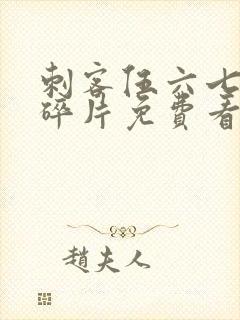 刺客伍六七
碎片免費看
趙夫人